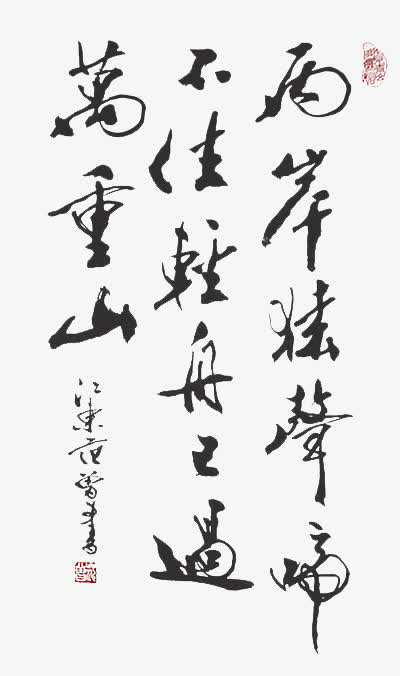 兩岸猿聲啼
不住輕舟已過
萬重山
江東范曾書